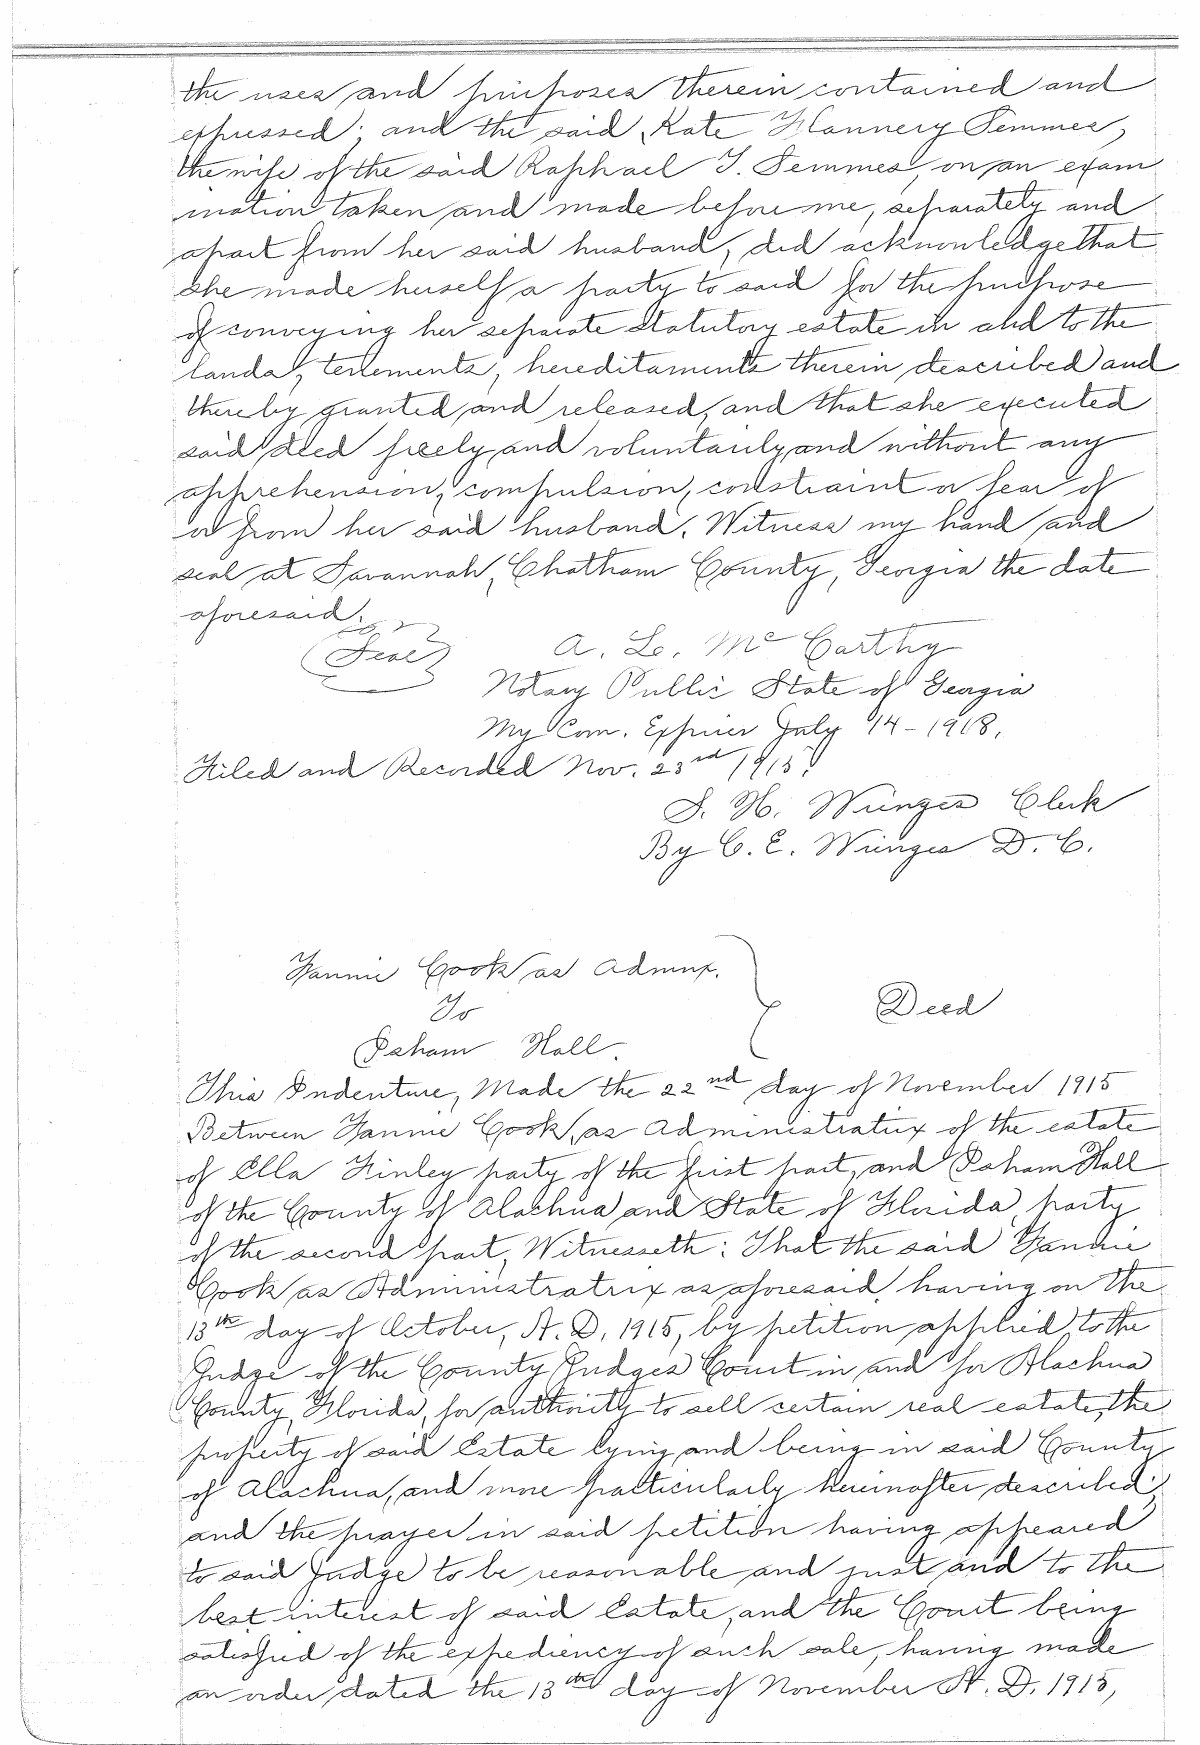 the uses and purposes therein contained and
expressed; and the said Kate Flannery Semmes,
the wife of the said Raphael T. Semmes, on an exam
ination taken and made before me, separately and
apart from her said husband, did acknowledge that
she made herself a party to said for the purpose
of conveying her separate statutory estate in and to the
lands, tenements, hereditaments therein described and
thereby granted and released, and that she executed
said deed freely and voluntarily and without any
apprehension, compulsion, constraint or fear of
or from her said husband. Witness my hand and
seal at Savannah, Chatham County, Georgia the date
aforesaid.
(Seal) A. L. McCarthy
Notary Public State of Georgia
My Com. Expires July 14-1918.
Filed and Recorded Nov. 23rd 1915.
S. H. Wienges Clerk
By C. E. Wienges D. C.
Fannie Cook as Admnx.
To
Deed
Isham Hall.
This Indenture, Made the 22nd day of November 1915
Between Fannie Cook, as Administratrix of the estate
of Ella Finley party of the first part, and Isham Hall
of the County of Alachua and State of Florida, party
of the second part, Witnesseth: That the said Fannie
Cook as Administratrix as aforesaid, having on the
13th day of October, A. D. 1915, by petition applied to the
Judge of the County Judges Court in and for Alachua
County, Florida, for authority to sell certain real estate, the
property of said Estate lying and being in said County
of Alachua, and more particularly hereinafter described;
and the prayer in said petition having appeared
to said Judge to be reasonable and just and to the
best interest of said Estate, and the Court being
satisfied of the expediency of such sale, having made
an order dated the 13th day of November A. D. 1915,